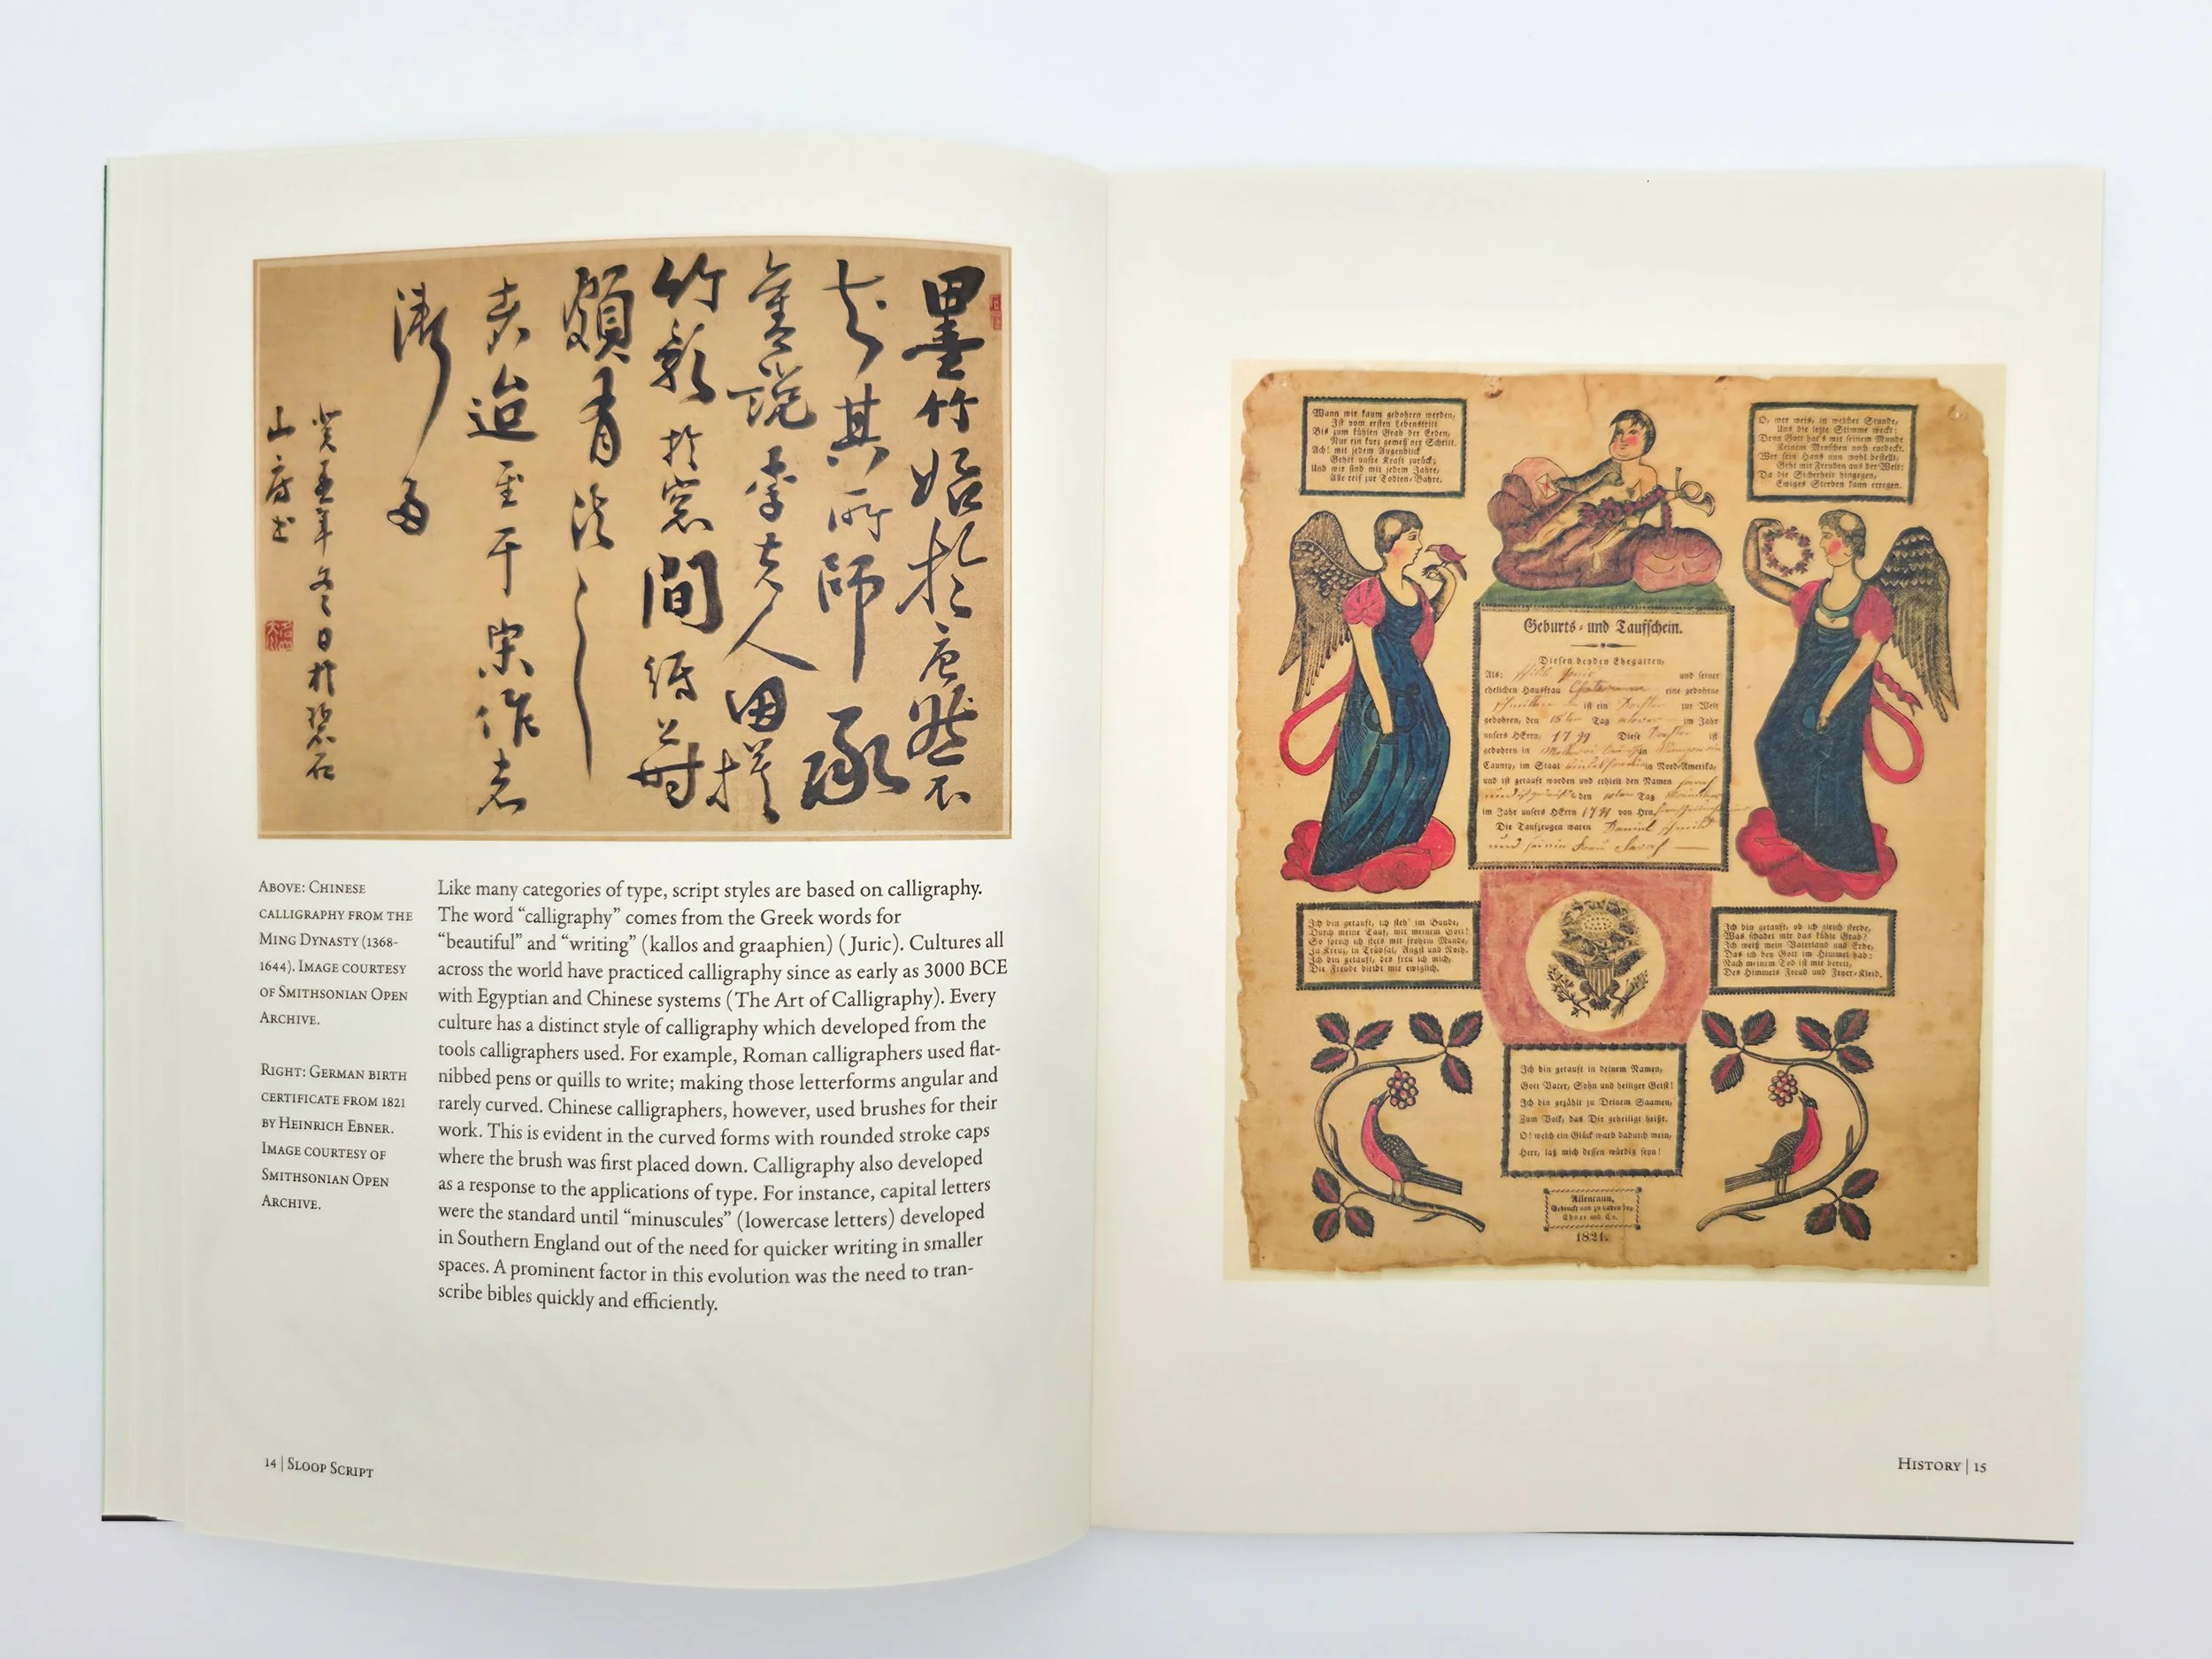 墨竹始於唐然不
知其所師承
舊說李夫人因描
竹影於窓間得之前
頗有法
表迨至于宋作者
漸多
癸丑年冬日於
ABOVE: CHINESE
CALLIGRAPHY FROM THE
MING DYNASTY (1368-
1644). IMAGE COURTESY
OF SMITHSONIAN OPEN
ARCHIVE.
RIGHT: GERMAN BIRTH
CERTIFICATE FROM 1821
BY HEINRICH EBNER.
IMAGE COURTESY OF
SMITHSONIAN OPEN
ARCHIVE.
Like many categories of type, script styles are based on calligraphy.
The word “calligraphy” comes from the Greek words for
“beautiful” and “writing” (kallos and graaphien) (Juric). Cultures all
across the world have practiced calligraphy since as early as 3000 BCE
with Egyptian and Chinese systems (The Art of Calligraphy). Every
culture has a distinct style of calligraphy which developed from the
tools calligraphers used. For example, Roman calligraphers used flat-
nibbed pens or quills to write; making those letterforms angular and
rarely curved. Chinese calligraphers, however, used brushes for their
work. This is evident in the curved forms with rounded stroke caps
where the brush was first placed down. Calligraphy also developed
as a response to the applications of type. For instance, capital letters
were the standard until “minuscules” (lowercase letters) developed
in Southern England out of the need for quicker writing in smaller
spaces. A prominent factor in this evolution was the need to tran-
scribe bibles quickly and efficiently.
14 | SLOOP SCRIPT
Wann wir kaum gebohren werden,
Ist vom ersten Lebenstritt
Bis zum kühlen Grab der Erden,
Nur ein kurz gemeß'ner Schritt.
Ach! mit jedem Augenblick
Gehet unsre Kraft zurück;
Und wir sind mit jedem Jahre,
Alle reif zur Todten-Bahre.
O, wer weis, in welcher Stunde,
Uns die lezte Stimme weckt;
Denn Gott hat's mit seinem Munde
Keinem Menschen noch entdeckt.
Wer sein Haus nun wohl bestellt,
Geht mit Freuden aus der Welt:
Da die Sicherheit hingegen,
Ewiges Sterben kann erregen.
Geburts- und Taufschein.
Diesen beyden Ehegatten,
Als: und seiner
ehelichen Hausfrau Catarina eine gebohrne
ist ein Tochter zur Welt
gebohren, den Tag im Jahr
unsers HErrn, 1799 Diese Tochter ist
gebohren in
County, im Staat in Nord-Amerika,
und ist getauft worden und erhielt den Namen
den Tag
im Jahr unsers HErrn von Hrn.
Die Taufzeugen waren Daniel
und seine Frau
Ich bin getauft, ich steh' im Bunde,
Durch meine Tauf, mit meinem Gott!
So sprech ich stets mit frohem Munde,
In Kreuz, in Trübsal, Angst und Noth.
Ich bin getauft, des freu ich mich,
Die Freude bleibt mir ewiglich.
Ich bin getauft, ob ich gleich sterbe,
Was schadet mir das kühle Grab?
Ich weiß mein Vaterland und Erbe,
Das ich bey Gott im Himmel hab:
Nach meinem Tod ist mir bereit,
Des Himmels Freud und Feyer-Kleid.
Ich bin getauft in deinem Namen,
Gott Vater, Sohn und heiliger Geist!
Ich bin gezählt zu Deinem Saamen,
Zum Volk, das Dir geheiligt heißt.
O! welch ein Glück ward dadurch mein,
Herr, laß mich dessen würdig seyn!
Allentaun,
Gedruckt und zu haben bey
Ebner und Co.
1821.
HISTORY | 15